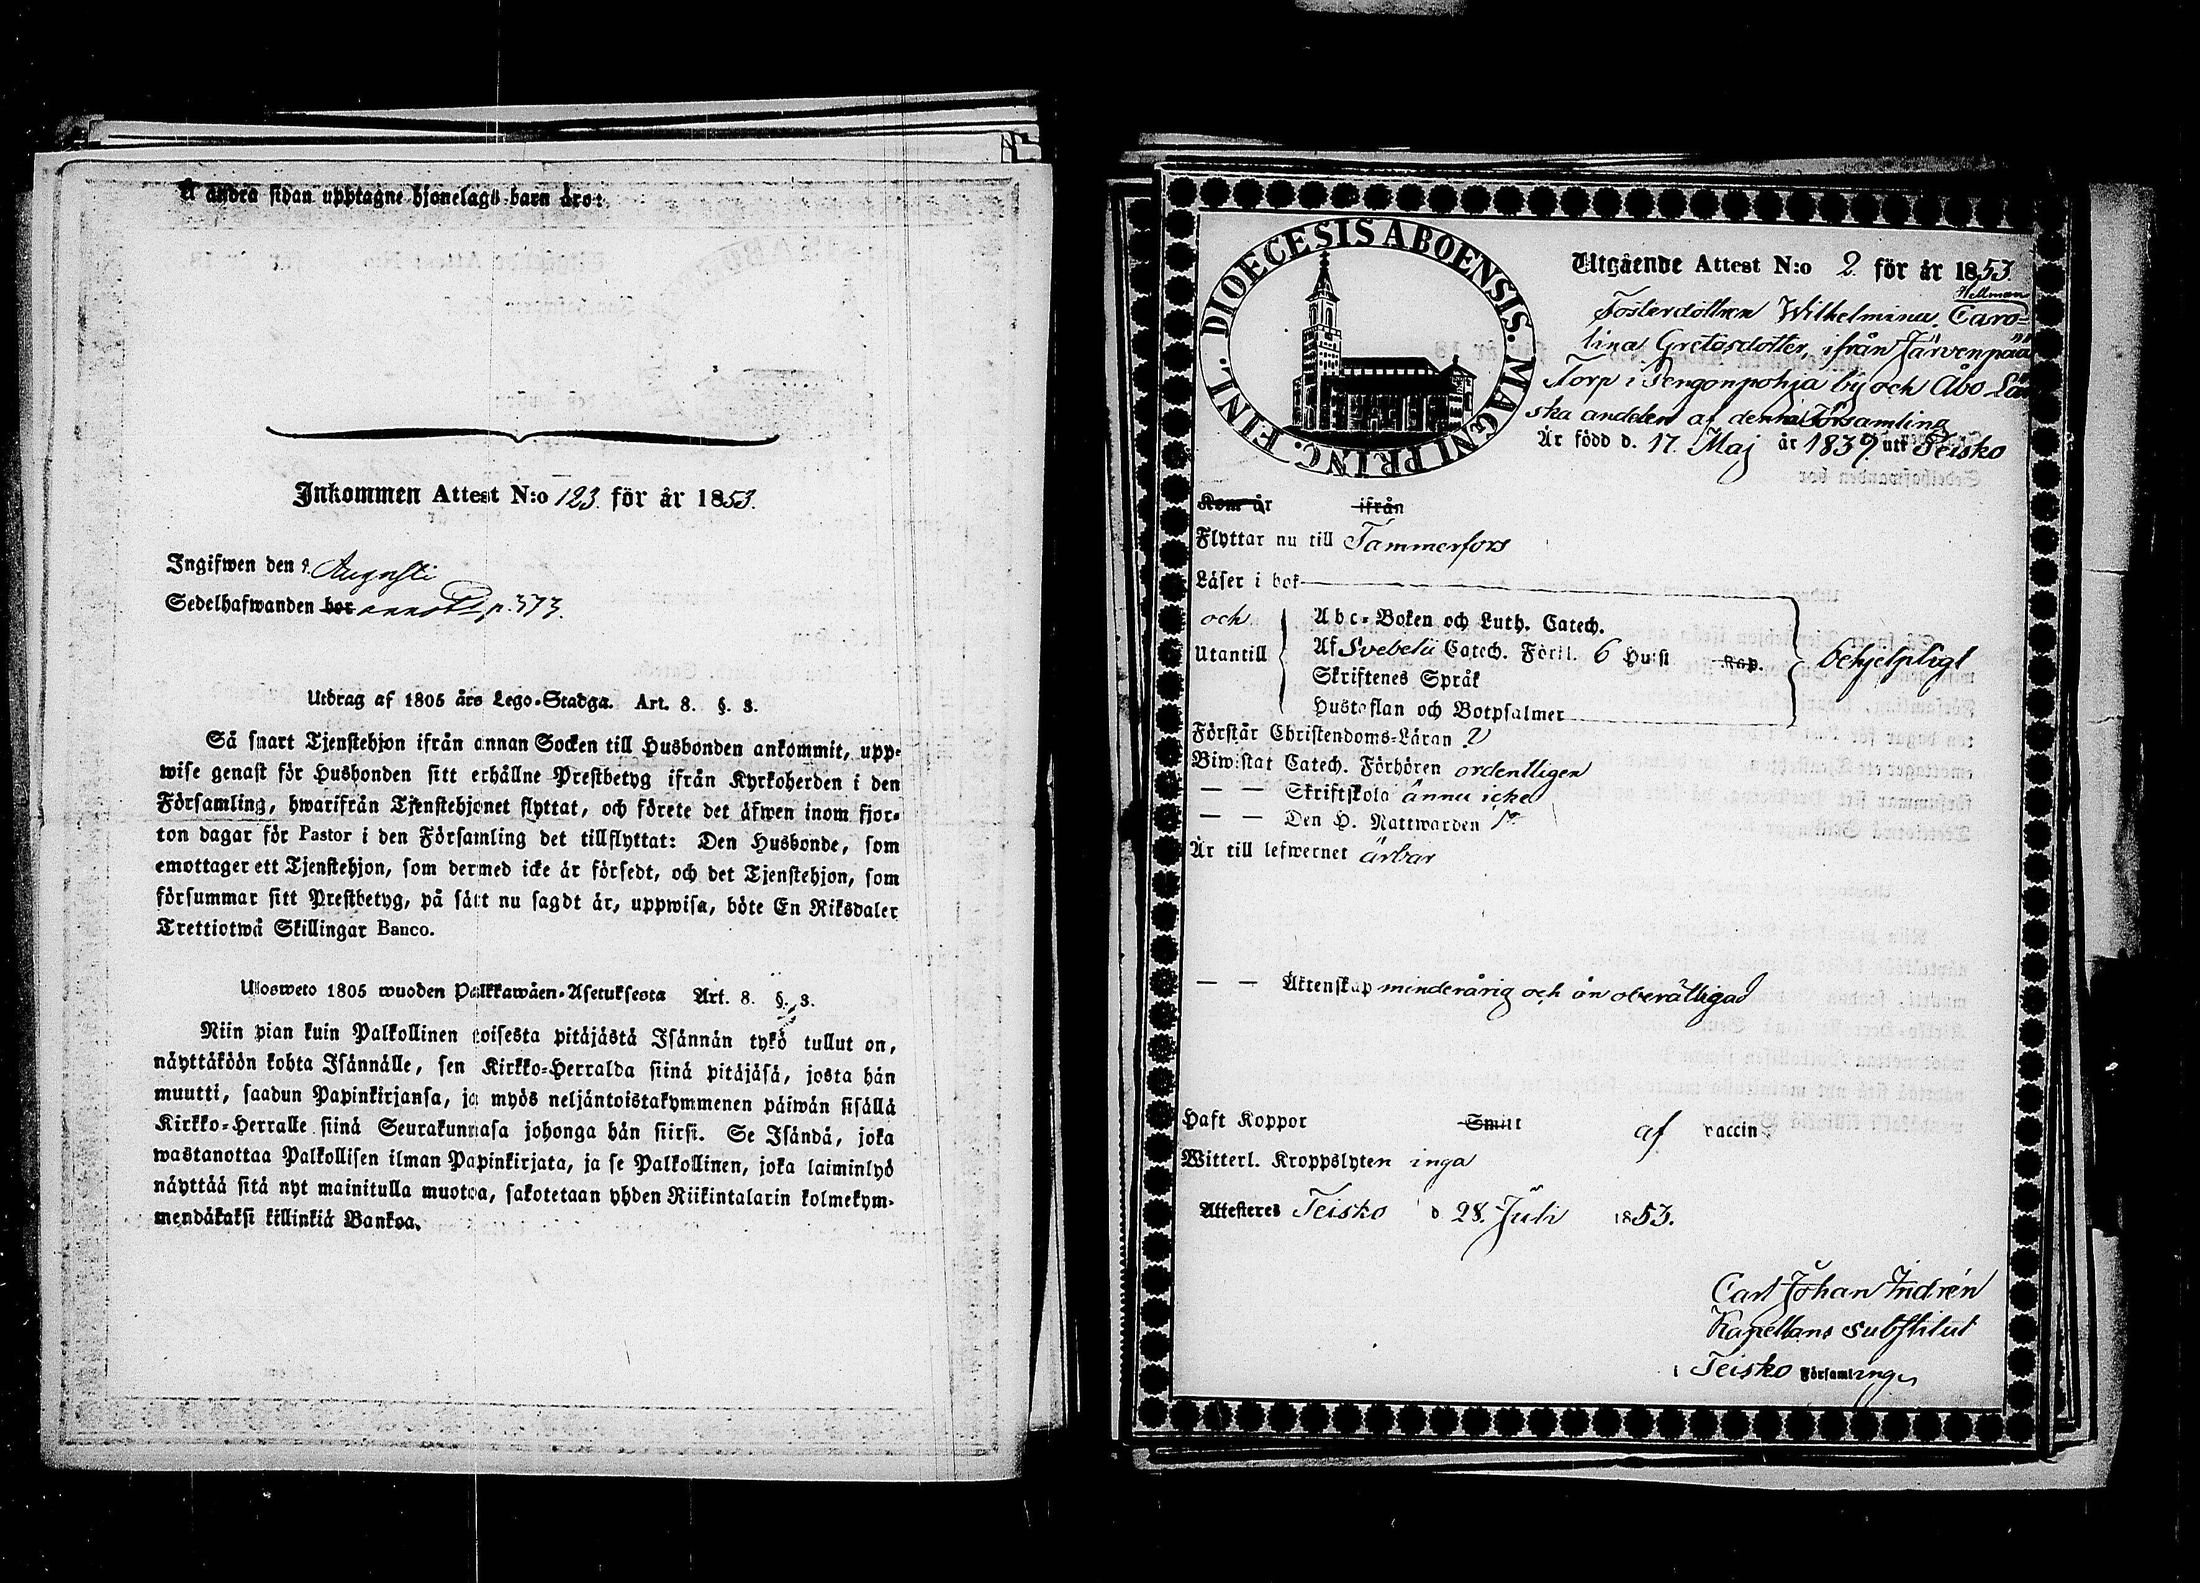 Å andra sidan upptagne hjonelags barn äro:
Inkommen Attest N:o 123. för år 1853.
Ingifwen den 9. Augusti
Sedelhafwanden bor annott. p. 373.
Utdrag af 1805 års Lego-Stadga. Art. 8. §. 3.
Så snart Tjenstehjon ifrån annan Socken till Husbonden ankommit, upp-
wise genast för Husbonden sitt erhållne Prestbetyg ifrån Kyrkoherden i den
Församling, hwarifrån Tjenstehjonet flyttat, och förete det äfwen inom fjor-
ton dagar för Pastor i den Församling det tillflyttat: Den Husbonde, som
emottager ett Tjenstehjon, som dermed icke är försedt, och det Tjenstehjon, som
försummar sitt Prestbetyg, på sätt nu sagdt är, uppwisa, böte En Riksdaler
Trettiotwå Skillingar Banco.
Ulosweto 1805 wuoden Palkkawäen-Asetuksesta Art. 8. §. 3.
Niin pian kuin Palkollinen toisesta pitäjästä Isännän tykö tullut on,
näyttäköön kohta Isännälle, sen Kirkko-Herralda siinä pitäjäsä, josta hän
muutti, saadun Papinkirjansa, ja myös neljäntoistakymmenen päiwän sisällä
Kirkko-Herralle siinä Seurakunnasa johonga hän siirsi. Se Isändä, joka
wastanottaa Palkollisen ilman Papinkirjata, ja se Palkollinen, joka laiminlyö
näyttää sitä nyt mainitulla muotoa, sakotetaan yhden Riikintalarin kolmekym-
mendäkaksi killinkiä Bankoa.
DIOECESIS ABOENSIS. MAGNI PRINC. FINL.
Utgående Attest N:o 2. för år 1853.
Hellman
Fosterdottren Wilhelmina Caro-
lina Gretasdotter, ifrån Järvenpää
Torp i Pengonpohja by och Åbo Län
ska andelen af denna Församling
Är född d. 17. Maj år 1839. uti Teisko
Kom år ifrån
Flyttar nu till Tammerfors
Läser i bok
och Abc-Boken och Luth. Catech.
Utantill Af Svebelii Catech. Förkl. 6 Hufst Kap. behjelpligt
Skriftenes Språk
Hustaflan och Botpsalmer
Förstår Christendoms-Läran
Biwistat Catech. Förhören ordentligen
— — Skriftskola ännu icke
— — Den H. Nattwarden
Är till lefwernet ärbar
— — Äktenskap minderårig och än oberättigad
Haft Koppor Smitt af vaccin
Witterl. Kroppslyten inga
Attesteres Teisko d. 28. Juli 1853.
Carl Johan Indrén
Kapellans substitut
i Teisko Församling